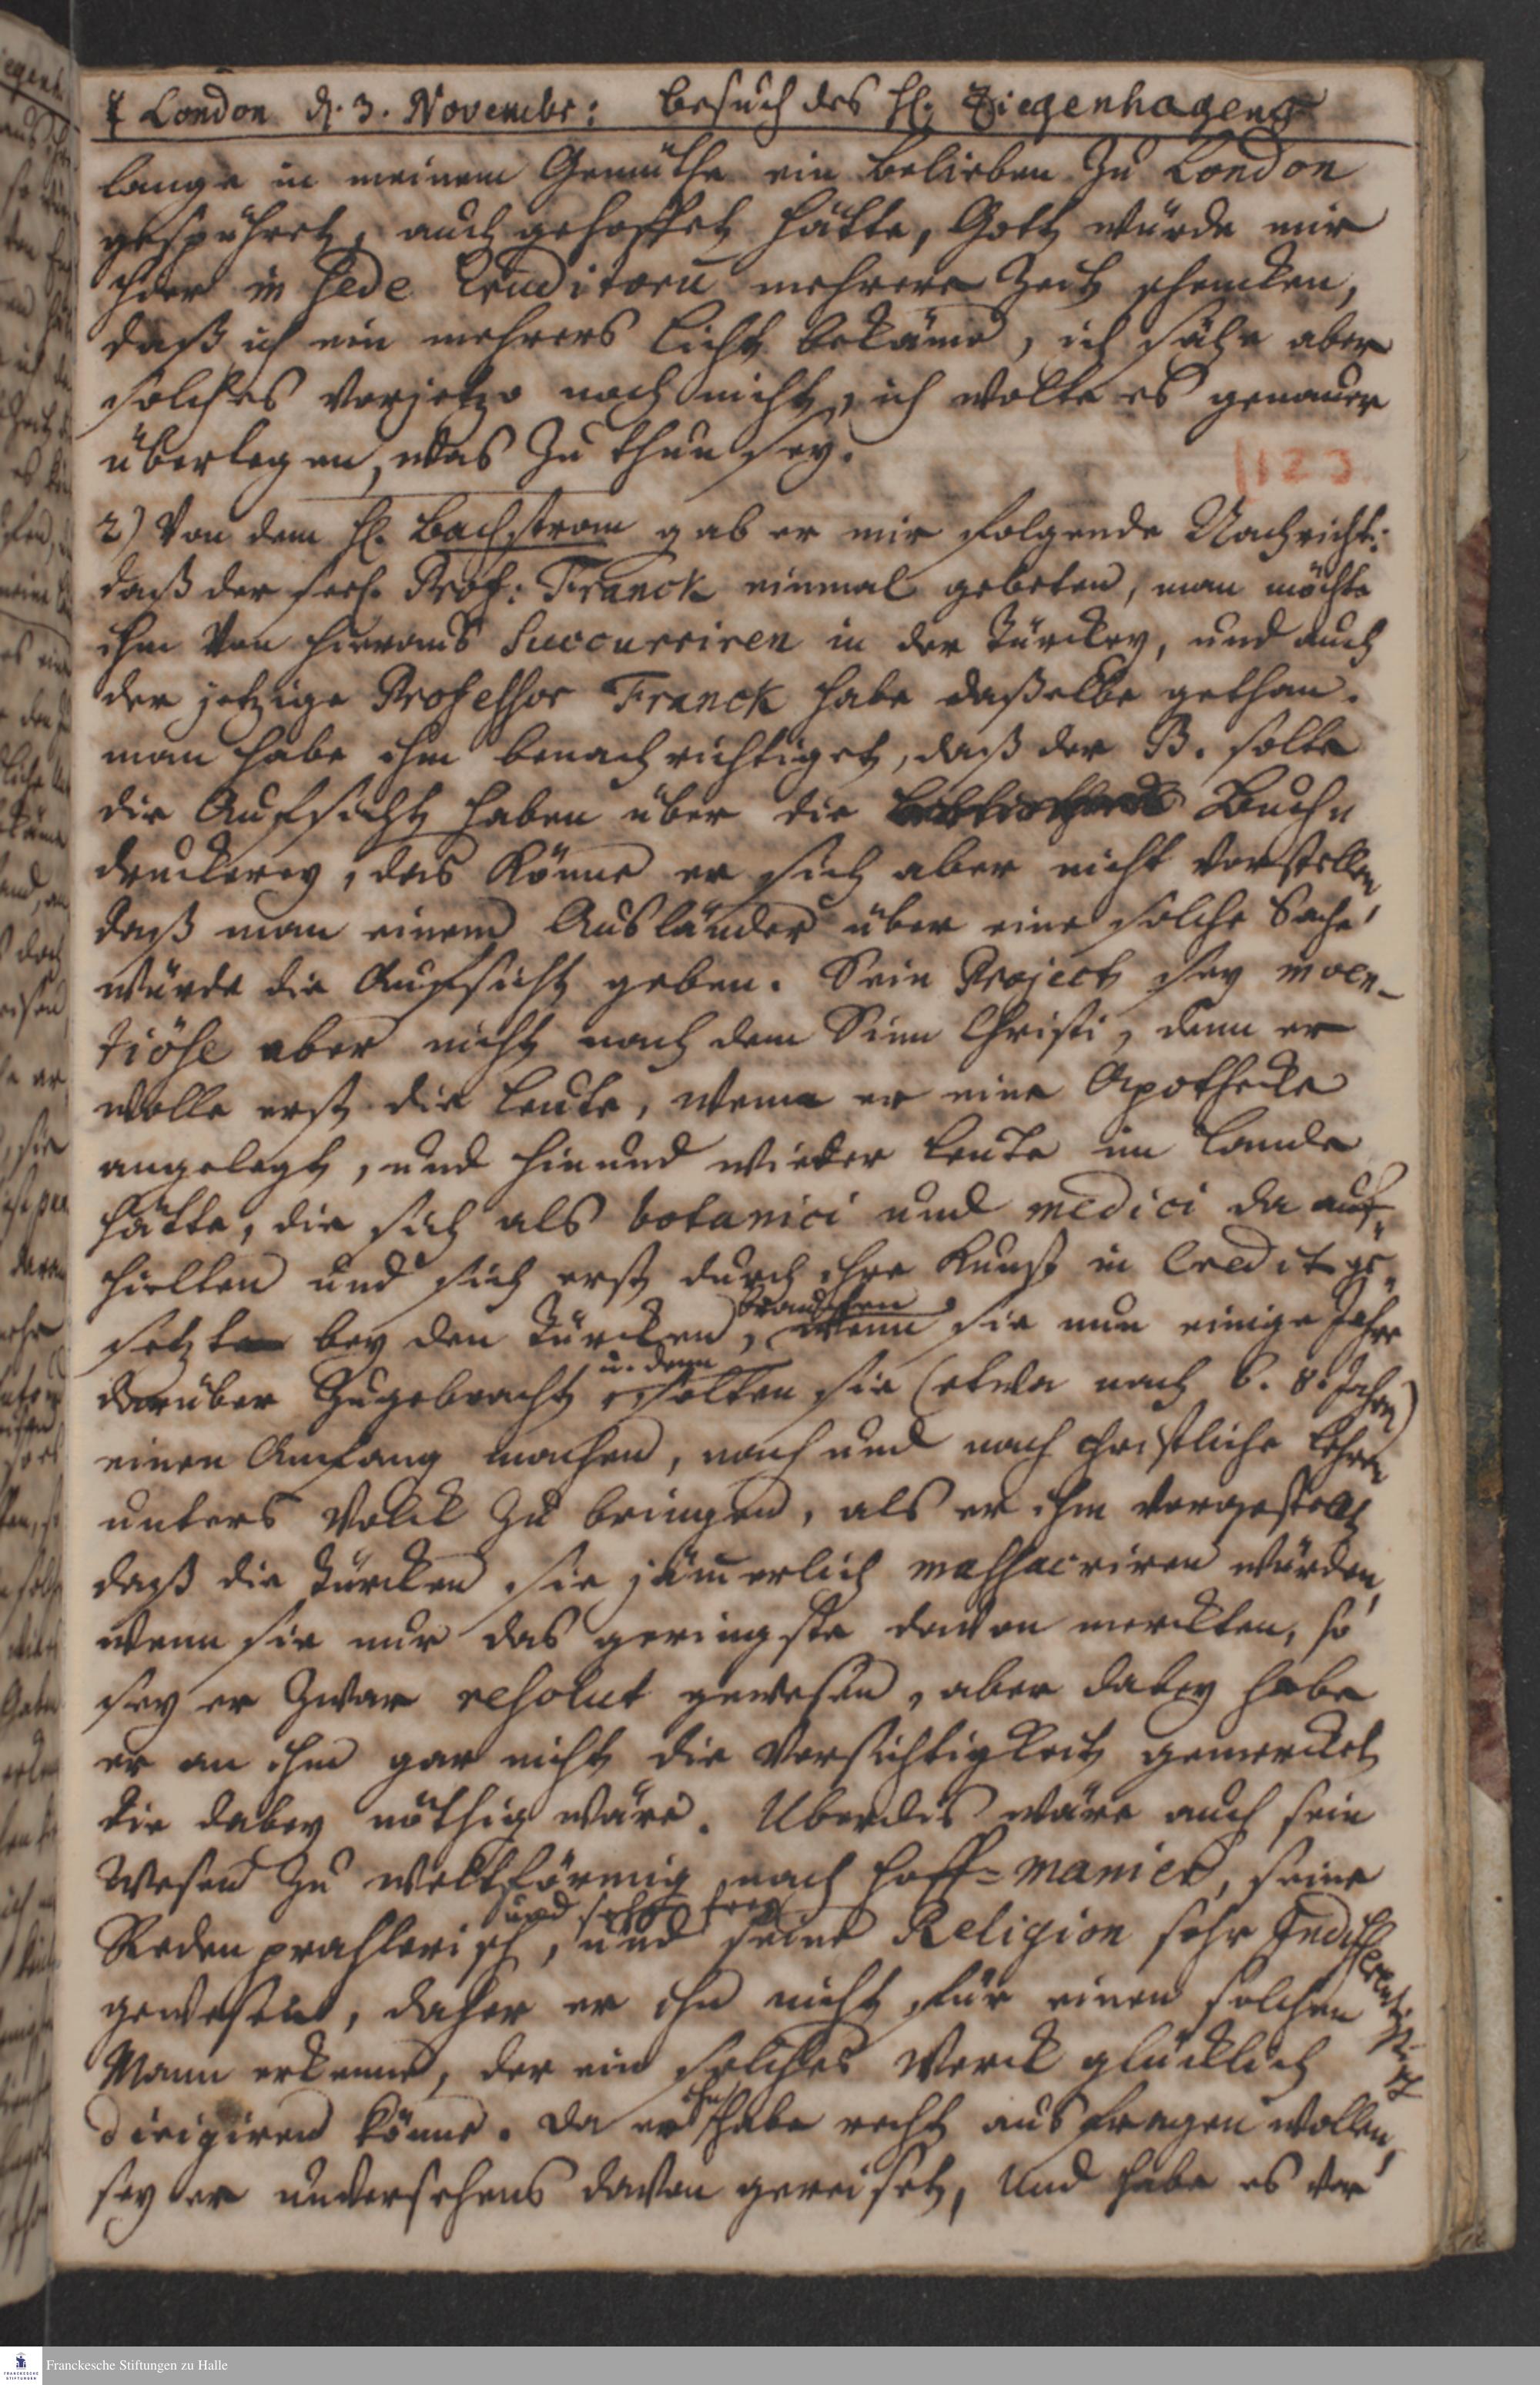 ☿ London d. 3. Novembr: Besuch des H. Ziegenhagens
lange in meinem Gemüthe ein Belieben zu London
gespühret, auch gehoffet hätte, Gott würde mir
hier in sede Eruditoru mehrere Zeit schencken,
daß ich ein mehrers Licht bekäme, ich sähe aber
solches vorjetzo noch nicht, ich wolte es genauer
überlegen, was zu thun sey.
123
2) Von dem H. Bachstrom gab er mir folgende Nachricht:
daß der seel. Prof: Franck einmal gebeten, man möchte
ihm von hieraus Succurriren in der Türckey, und auch
der jetzige Professor Franck habe daßelbe gethan.
man habe ihm benachrichtiget, daß der B. solte
die Aufsicht haben über die Buch
druckerey, das könne er sich aber nicht vorstellen,
daß man einem Ausländer über eine solche Sache
würde die Aufsicht geben. Sein Project sey inven-
tiöse aber nicht nach dem Sinn Christi, denn er
wolle erst die Leute, wenn er eine Apothecke
angelegt, und hin und wieder Leute im Lande
hätte, die sich als botanici und medici da auf-
hielten und sich erst durch ihre Kunst in Credit ge-
setzt bey den Türcken, brauchen wenn sie nun einige Jahre
darüber zugebracht u. denn solten sie (etwa nach 6. 8. Jahren)
einen Anfang machen, nach und nach christliche Lehren
unters Volck zu bringen, als er ihm vorgestellt
daß die Türcken sie jämerlich massacriren würden,
wenn sie nur das geringste davon merckten, so
sey er zwar resolut gewesen, aber dabey habe
er an ihm gar nicht die Vorsichtigkeit gemercket
die dabey nöthig wäre. Uberdis wäre auch sein
Wesen zu weltförmig nach Hoff-manier, seine
Reden prahlerisch, und sehr frey und seine Religion sehr Indifferent
gewesen, daher er ihn nicht für einen solchen
Mann erkenne, der ein solches Werck glücklich
dirigiren könne. Da er ihn habe recht ausfragen wollen,
sey er unversehens davon gereiset, und habe es ver